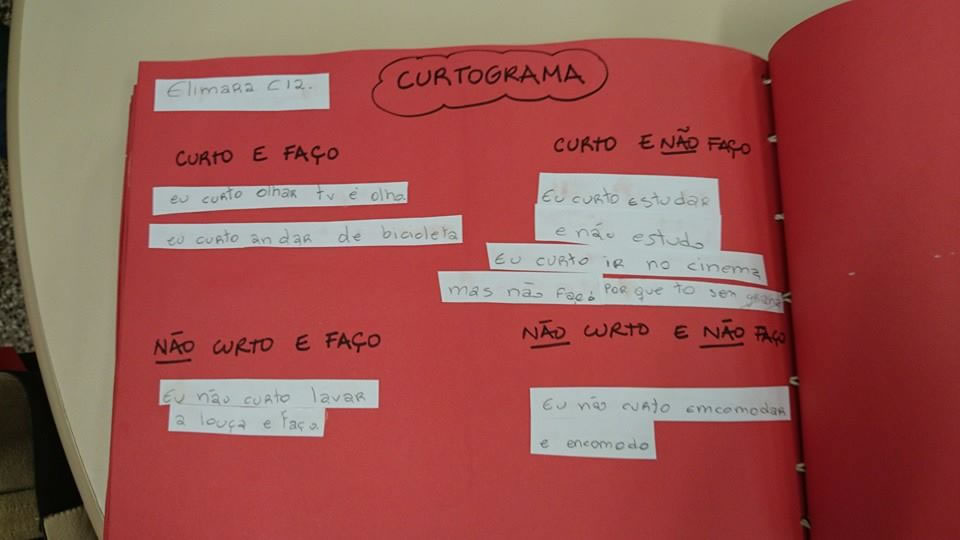 Elimara C12.
CURTOGRAMA
CURTO E FAÇO
eu curto olhar tv é olho.
eu curto andar de bicicleta
CURTO E NÃO FAÇO
Eu curto Estudar
e não estudo
Eu curto ir no cinema
mas não faço Por que to sem grana
NÃO CURTO E FAÇO
Eu não curto lavar
a louça e faço.
NÃO CURTO E NÃO FAÇO
Eu não curto emcomodar
e encomodo